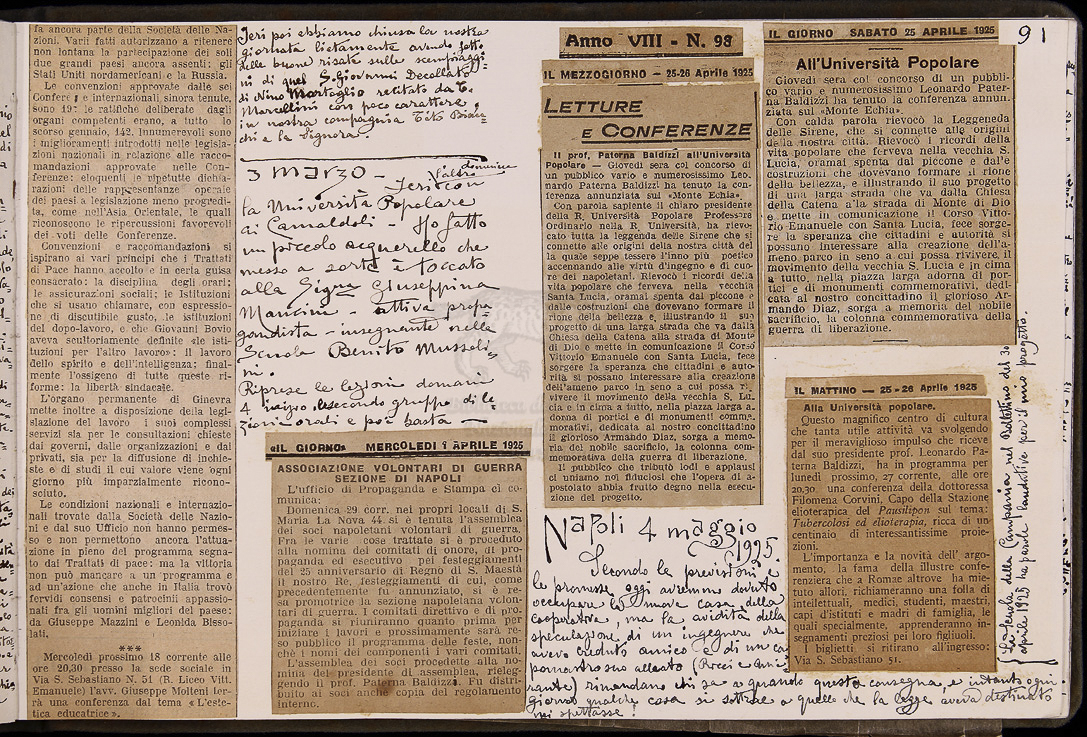 fa ancora parte della Società delle Na-
zioni. Varii fatti autorizzano a ritenere
non lontana la partecipazione dei soli
due grandi paesi ancora assenti: gli
Stati Uniti nordamericani e la Russia.
Le convenzioni approvate dalle sei
Confere e internazionali sinora tenute,
sono 19: le ratifiche deliberate dagli
organi competenti erano, a tutto lo
scorso gennaio, 142. Innumerevoli sono
i miglioramenti introdotti nelle legisla-
zioni nazionali in relazione alle racco-
mandazioni approvate nelle Con-
ferenze: eloquenti le ripetute dichia-
razioni delle rappresentanze operaie
dei paesi a legislazione meno progredi-
ta, come nell'Asia Orientale, le quali
riconoscono le ripercussioni favorevoli
dei voti delle Conferenze.
Convenzioni e raccomandazioni si
ispirano ai vari principi che i Trattati
di Pace hanno accolto e in certa guisa
consacrato: la disciplina degli orari;
le assicurazioni sociali; le istituzioni
che si usano chiamare, con espressio-
ne di discutibile gusto, le istituzioni
del dopo-lavoro, e che Giovanni Bovio
aveva scultoriamente definite «le isti-
tuzioni per l'altro lavoro»: il lavoro
dello spirito e dell'intelligenza; final-
mente l'ossigeno di tutte queste ri-
forme: la libertà sindacale.
L'organo permanente di Ginevra
mette inoltre a disposizione della legi-
slazione del lavoro i suoi complessi
servizi sia per le consultazioni chieste
dai governi, dalle organizzazioni e dai
privati, sia per la diffusione di inchie-
ste e di studi il cui valore viene ogni
giorno più imparzialmente ricono-
sciuto.
Le condizioni nazionali e internazio-
nali trovate dalla Società delle Nazio-
ni e dal suo Ufficio non hanno permes-
so e non permettono ancora l'attua-
zione in pieno del programma segna-
to dai Trattati di pace: ma la vittoria
non può mancare a un programma e
ad un'azione che anche in Italia trovò
fervidi consensi e patrocini appassio-
nati fra gli uomini migliori del paese:
da Giuseppe Mazzini e Leonida Bisso-
lati.
***
Mercoledì prossimo 18 corrente alle
ore 20,30 presso la sede sociale in
Via S. Sebastiano N. 51 (R. Liceo Vitt.
Emanuele) l'avv. Giuseppe Molteni ter-
rà una conferenza dal tema «L'este-
tica educatrice».
Ieri poi abbiamo chiusa la nostra
giornata lietamente avendo fatto
delle buone risate sulle scempiaggi-
ni di quel S. Giovanni Decollato
di Nino Martoglio recitato da T.
Marcellini con poco carattere,
in nostra compagnia Tito
e la Signora.
3 marzo - Ieri l'altro domenica con
la Università Popolare
ai Camaldoli - Ho fatto
un piccolo acquerello che
messo a sorte è toccato
alla Sigra Giuseppina
Mancini - attiva propa
gandista - insegnante nella
Scuola Benito Mussoli-
ni.
Riprese le lezioni domani
4 marzo il secondo gruppo di le-
zioni orali e poi basta -
«IL GIORNO» MERCOLEDI 1 APRILE 1925
ASSOCIAZIONE VOLONTARI DI GUERRA
SEZIONE DI NAPOLI
L'ufficio di Propaganda e Stampa ci co-
munica:
Domenica 29 corr. nei propri locali di S.
Maria La Nova 44 si è tenuta l'assemblea
dei soci napoletani volontari di guerra.
Fra le varie cose trattate si è proceduto
alla nomina dei comitati di onore, di pro-
paganda ed esecutivo pei festeggiamenti
del 25 anniversario di Regno di S. Maestà
il nostro Re, festeggiamenti di cui, come
precedentemente fu annunziato, si è re-
sa promotrice la sezione napoletana volon-
tari di guerra. I comitati direttivo e di pro-
paganda si riuniranno quanto prima per
iniziare i lavori e prossimamente sarà re-
so pubblico il programma delle feste, non-
chè i nomi dei componenti i vari comitati.
L'assemblea dei soci procedette alla no-
mina del presidente di assemblea, rieleg-
gendo il prof. Paterna Baldizzi. Fu distri-
buito ai soci anche copia del regolamento
interno.
Anno VIII - N. 98
IL MEZZOGIORNO - 25-26 Aprile 1925
LETTURE
E CONFERENZE
Il prof. Paterna Baldizzi all'Università
Popolare - Giovedì sera col concorso di
un pubblico vario e numerosissimo Leo-
nardo Paterna Baldizzi ha tenuto la con-
ferenza annunziata sul «Monte Echia».
Con parola sapiente il chiaro presidente
della R. Università Popolare Professore
Ordinario nella R. Università, ha rievo-
cato tutta la leggenda delle Sirene che si
connette alle origini della nostra città del
la quale seppe tessere l'inno più poetico
accennando alle virtù d'ingegno e di cuo-
re dei napoletani. Rievocò i ricordi della
vita popolare che ferveva nella vecchia
Santa Lucia, oramai spenta dal piccone e
dalle costruzioni che dovevano formare il
rione della bellezza, e, illustrando il suo
progetto di una larga strada che va dalla
Chiesa della Catena alla strada di Monte
di Dio e mette in comunicazione il Corso
Vittorio Emanuele con Santa Lucia, fece
sorgere la speranza che cittadini e auto-
rità si possano interessare alla creazione
dell'ameno parco in seno a cui possa ri-
vivere il movimento della vecchia S. Lu-
cia e in cima a tutto, nella piazza larga a-
dorna di portici e di monumenti comme-
morativi, dedicata al nostro concittadino
il glorioso Armando Diaz, sorga a memo-
ria del nobile sacrificio, la colonna com-
memorativa della guerra di liberazione.
Il pubblico che tributò lodi e applausi
ci uniamo noi fiduciosi che l'opera di a-
postolato abbia frutto degno nella esecu-
zione del progetto.
Napoli 4 maggio
1925.
Secondo le previsioni e
le promesse oggi avremmo dovuto
occupare la nuova casa della
cooperativa, ma la avidità della
speculazione di un ingegnere che
avevo creduto amico e di un ca
pomastro suo alleato (Ricci e Ami-
rante) rimandano chi sa a quando questa consegna, e intanto ogni
giorno qualche cosa si sottrae a quello che la legge aveva destinato
ci spettasse!
IL GIORNO SABATO 25 APRILE 1925
91
All'Università Popolare
Giovedì sera col concorso di un pubbli-
co vario e numerosissimo Leonardo Pater-
na Baldizzi ha tenuto la conferenza annun-
ziata sul «Monte Echia».
Con calda parola rievocò la Leggeneda
delle Sirene, che si connette alle origini
della nostra città. Rievocò i ricordi della
vita popolare che ferveva nella vecchia S.
Lucia, oramai spenta dal piccone e dalle
costruzioni che dovevano formare il rione
della bellezza, e illustrando il suo progetto
di una larga strada che va dalla Chiesa
della Catena a'la strada di Monte di Dio
e mette in comunicazione il Corso Vitto-
rio Emanuele con Santa Lucia, fece sorge-
re la speranza che cittadini e autorità si
possano interessare alla creazione dell'a-
meno parco in seno a cui possa rivivere il
movimento della vecchia S. Lucia e in cima
a tutto, nella piazza larga adorna di por-
tici e di monumenti commemorativi, dedi-
cata al nostro concittadino il glorioso Ar-
mando Diaz, sorga a memoria del nobile
sacrificio, la colonna commemorativa della
guerra di liberazione.
IL MATTINO - 25-26 Aprile 1925
Alla Università popolare.
Questo magnifico centro di cultura
che tanta utile attività va svolgendo
per il meraviglioso impulso che riceve
dal suo presidente prof. Leonardo Pa-
terna Baldizzi, ha in programma per
lunedì prossimo, 27 corrente, alle ore
20,30, una conferenza della dottoressa
Filomena Corvini, Capo della Stazione
elioterapica del Pausilipon sul tema:
Tubercolosi ed elioterapia, ricca di un
centinaio di interessantissime proie-
zioni.
L'importanza e la novità dell' argo-
mento, la fama della illustre confe-
renziera che a Roma e altrove ha mie-
tuto allori, richiameranno una folla di
intellettuali, medici, studenti, maestri,
capi d'istituti e madri di famiglia, le
quali specialmente, apprenderanno in-
segnamenti preziosi pei loro figliuoli.
I biglietti si ritirano all'ingresso:
Via S. Sebastiano 51.
La Scuola della Campania nel Bollettino del 30
aprile 1925 ha parole lusinghiere pel mio progetto.